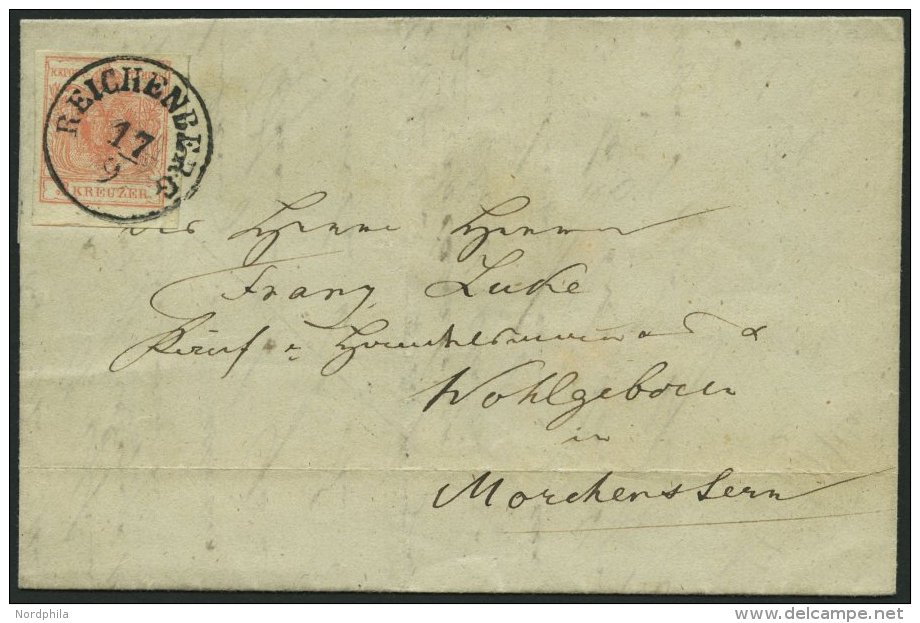 REICHENBERG
17
9
KREUZER.
Herrn Herrn
Franz Luke
Wohlgeboren
in
Morchenstern
Nordphila
delcampe.net